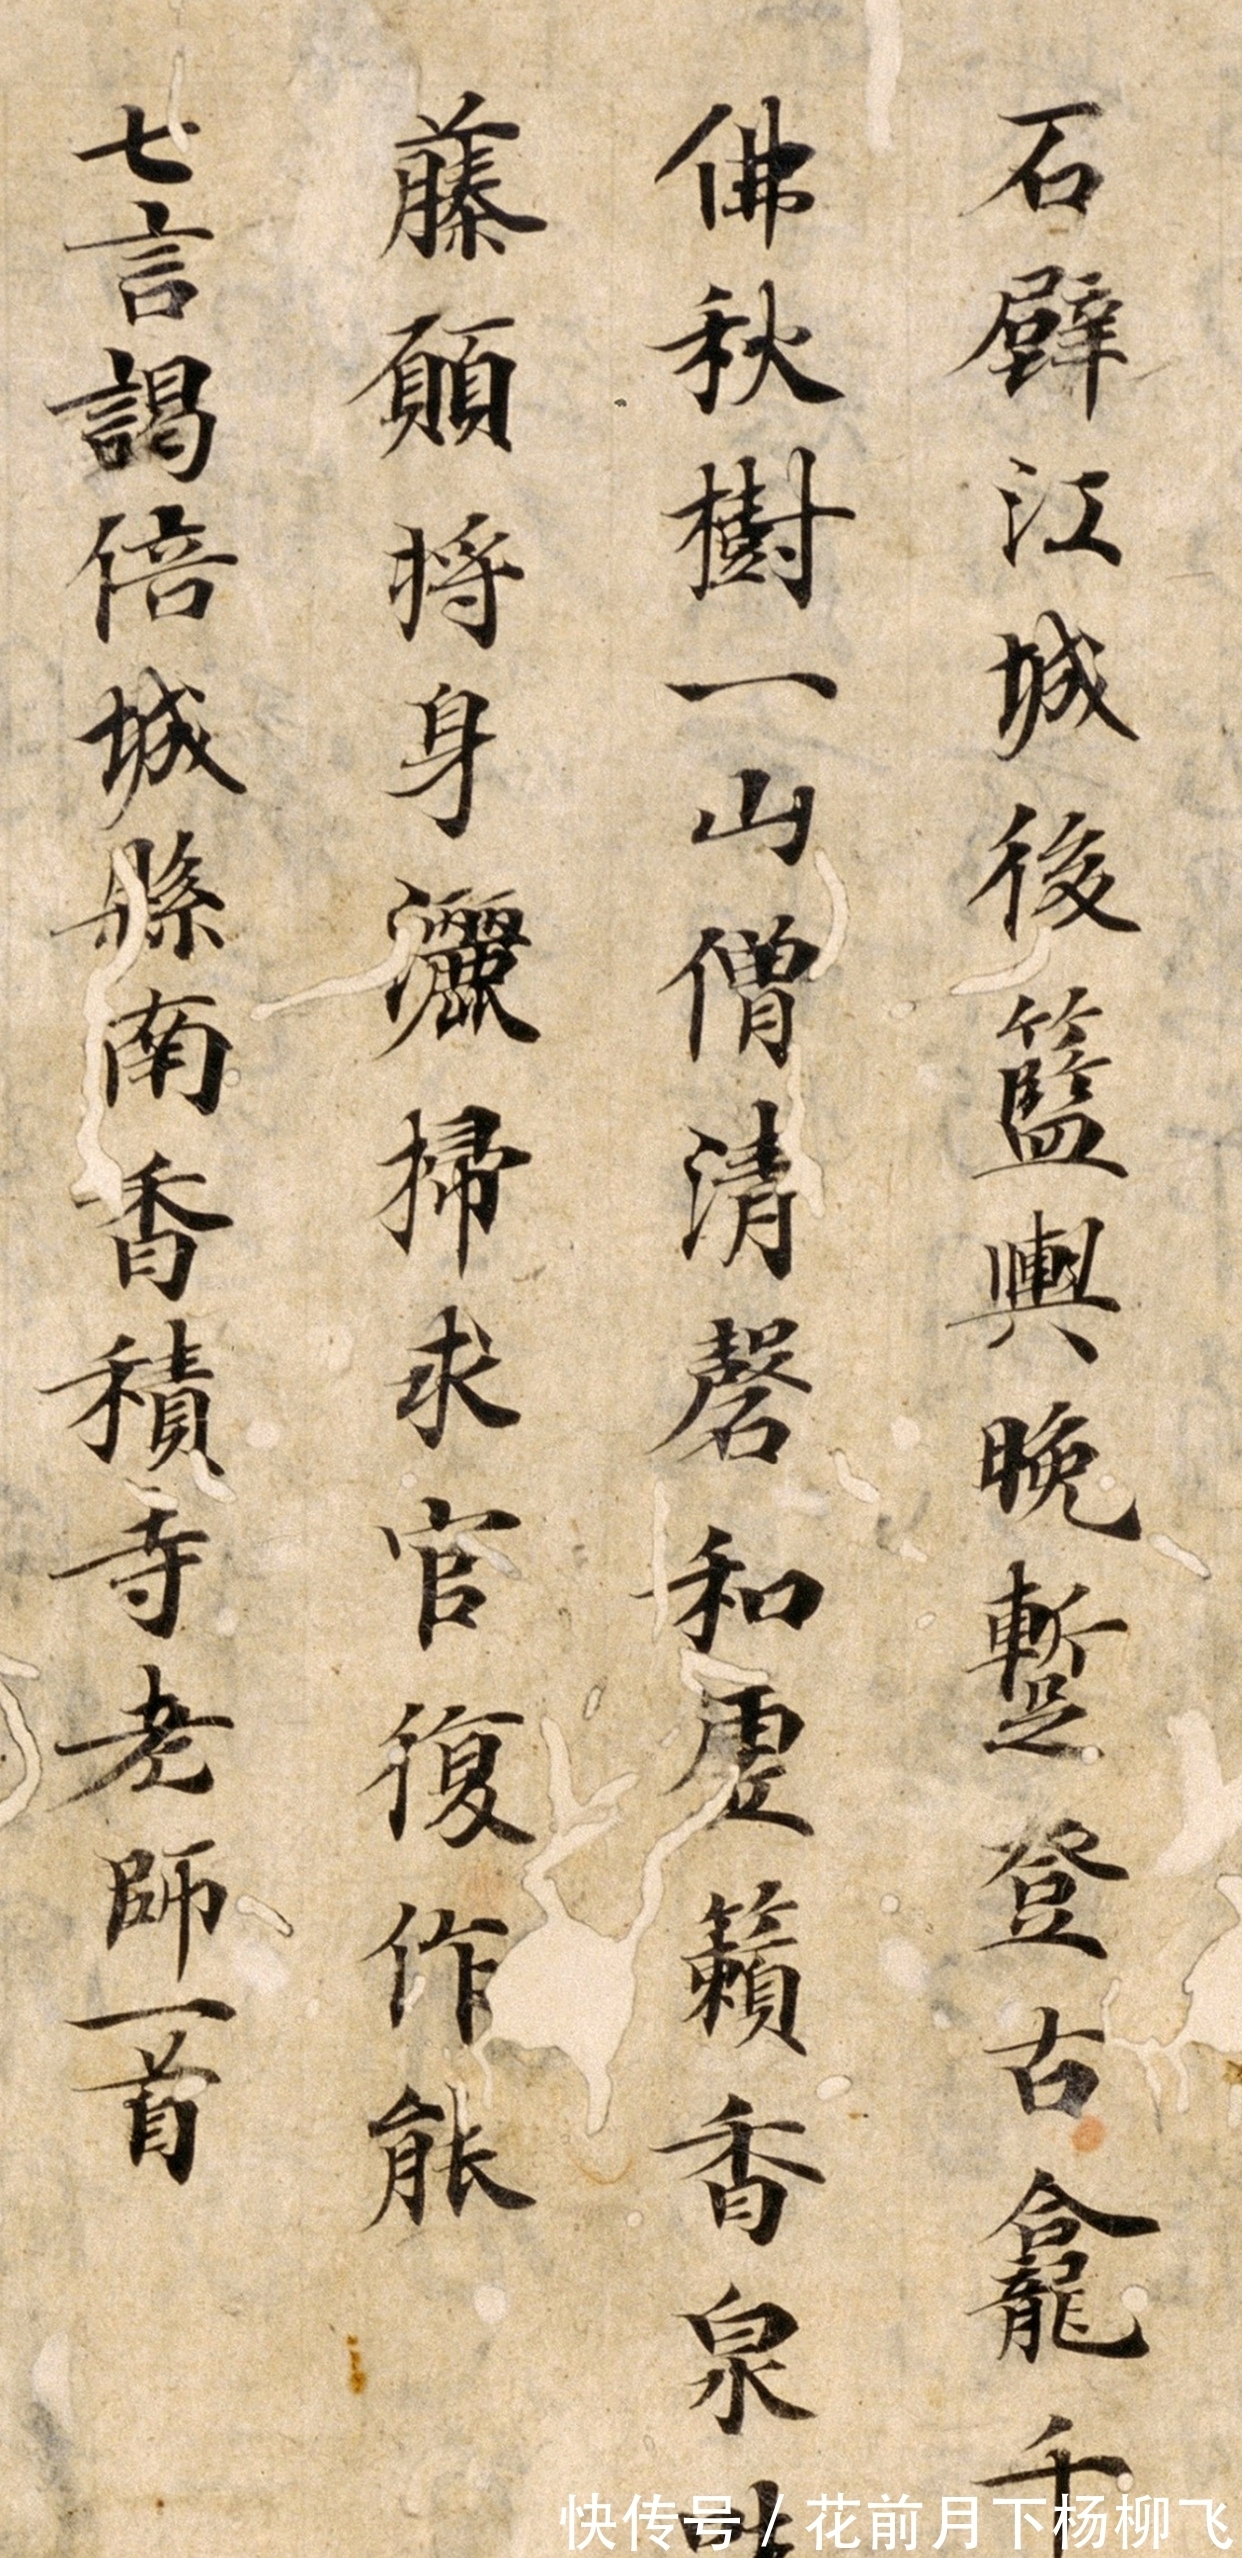 石壁江城後籃輿晚蹔登古龕千
佛秋樹一山僧清磬和虛籟香泉
藤願將身灑掃求官復作能
七言謁倍城縣南香積寺老師一首
快传号/花前月下杨柳飞